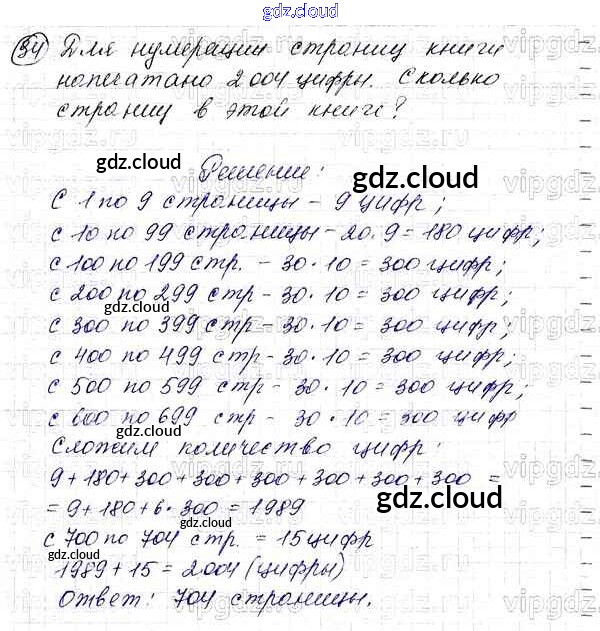 gdz.cloud
34 Для нумерации страниц книги
напечатано 2004 цифры. Сколько
страниц в этой книге?
gdz.cloud
Решение:
gdz.cloud
С 1 по 9 страницы - 9 цифр;
с 10 по 99 страницы - 20·9=180 цифр;
с 100 по 199 стр. - 30·10=300 цифр;
с 200 по 299 стр - 30·10=300 цифр;
gdz.cloud
gdz.cloud
с 300 по 399 стр - 30·10=300 цифр;
с 400 по 499 стр - 30·10=300 цифр;
с 500 по 599 стр - 30·10=300 цифр;
gdz.cloud
с 600 по 699 стр - 30·10=300 цифр
gdz.cloud
Сложим количество цифр:
9+180+300+300+300+300+300+300=
=9+180+6·300=1989
gdz.cloud
с 700 по 704 стр. = 15 цифр
gdz.cloud
1989+15=2004 (цифры)
Ответ: 704 страницы.
gdz.cloud